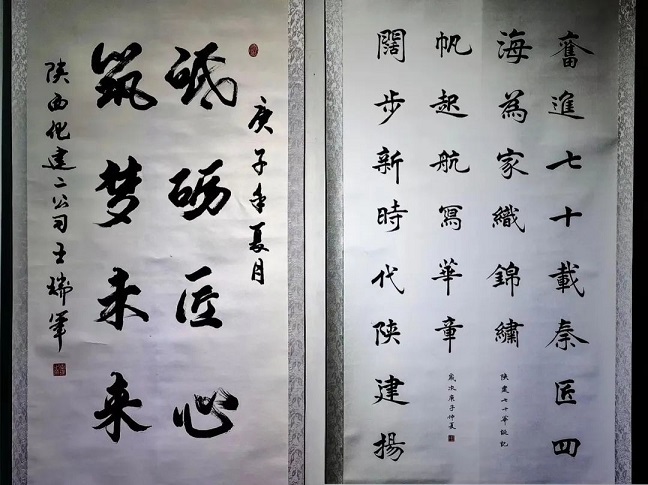 奮進七十載秦匠四
海為家織錦繡
陝建七十華誕記
闊步新時代陝建揚
帆起航寫華章
歲次庚子仲夏
庚子年夏月
砥砺匠心
筑梦未来
陕西化建二公司王瑞軍